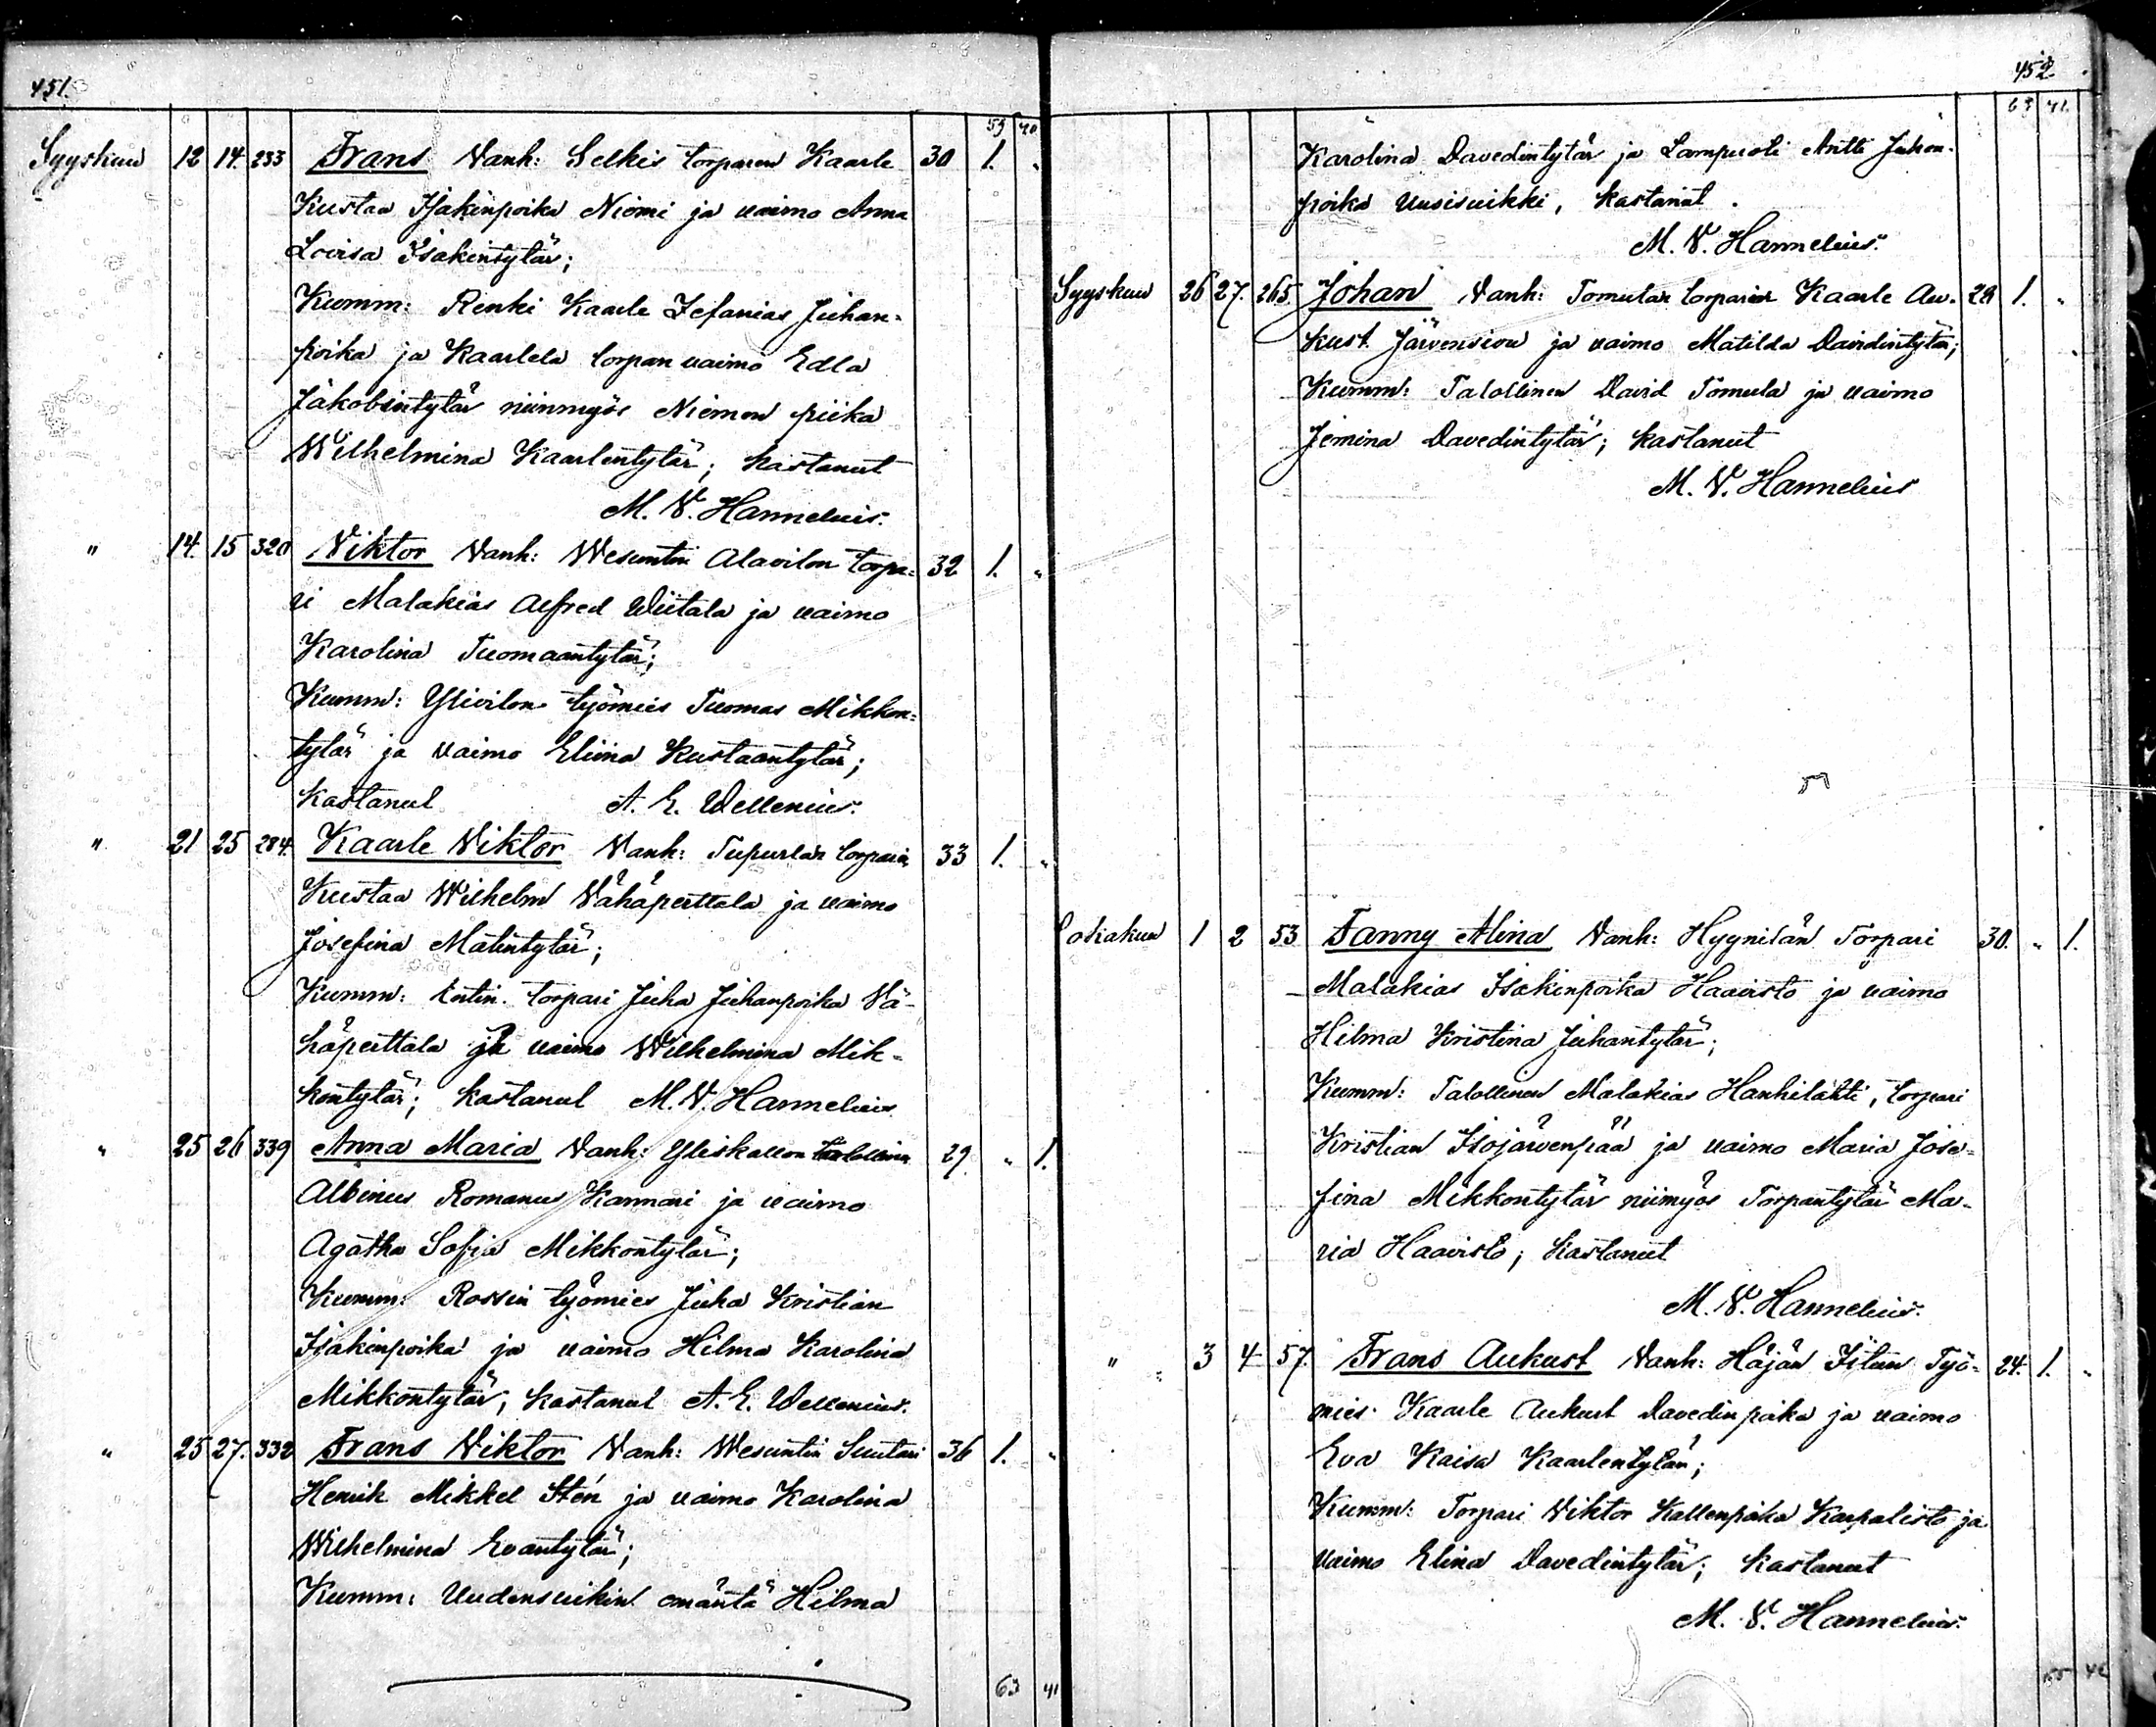 451.
59 40
Syyskuu 12 14. 233 Frans Vanh: Selkis torparen Kaarle 30 1. "
Kustaa Isakinpoika Niemi ja vaimo Anna
Lovisa Isakintytär;
Kumm: Renki Kaarle Sefanias Juhan-
poika ja Kaarlela torpan vaimo Edla
Jakobsintytär niinmyös Niemen piika
Wilhelmina Kaarlentytär; kastanut
M. V. Hannelius.
" 14. 15 320 Viktor Vanh: Wesuntin Alavilon torpa- 32 1. "
ri Malakias Alfred Wiitala ja vaimo
Karolina Tuomaantytär;
Kumm: Ylivilon työmies Tuomas Mikkon-
tytär ja vaimo Eliina Kustaantytär;
kastanut A. E. Wellenius.
" 21 25 284. Kaarle Viktor Vanh: Tupurlan torpari 33 1. "
Kustaa Wilhelm Vähäperttala ja vaimo
Josefina Matintytär;
Kumm: entin. torpari Juha Juhanpoika Vä-
häperttala ja vaimo Wilhelmina Mik-
kontytär; kastanut M. V. Hannelius.
" 25 26 339 Anna Maria Vanh: Yliskallon talollinen 29 " 1.
Albinus Romanus Kannari ja vaimo
Agatha Sofia Mikkontytär;
Kumm: Rossin työmies Juha Kristian
Isakinpoika ja vaimo Hilma Karolina
Mikkontytär; kastanut A. E. Wellenius.
" 25 27. 332 Frans Viktor Vanh: Wesuntin Suutari 36 1. "
Henrik Mikkel Stén ja vaimo Karolina
Wilhelmina Evantytär;
Kumm: Uudensuikin emäntä Hilma
63 41
452
63 41.
Karolina Davedintytär ja Lampuoti Antti Juhon-
poika Uusisuikki, kastanut.
M. V. Hannelius.
Syyskuu 26 27. 265. Johan Vanh: Tomulan torpari Kaarle Au- 29 1. "
kust Järvensivu ja vaimo Matilda Davidintytär;
Kumm: Talollinen David Tomula ja vaimo
Jemina Davedintytär; kastanut
M. V. Hannelius
Lokakuu 1 2 53 Fanny Alina Vanh: Hyynilän Torpari 30. " 1.
Malakias Isakinpoika Haavisto ja vaimo
Hilma Kristina Juhantytär;
Kumm: Talollinen Malakias Hanhilahti, torpari
Kristian Isojärvenpää ja vaimo Maria Jose-
fina Mikkontytär niimyös Torpantytär Ma-
ria Haavisto; kastanut
M. V. Hannelius.
" 3 4 57. Frans Aukust Vanh: Häjän Itsun Työ- 24. 1. "
mies Kaarle Aukust Davedinpoika ja vaimo
Eva Kaisa Kaarlentytär;
Kumm: Torpari Viktor Kallenpoika Karpalisto ja
vaimo Elina Davedintytär; kastanut
M. V. Hannelius.